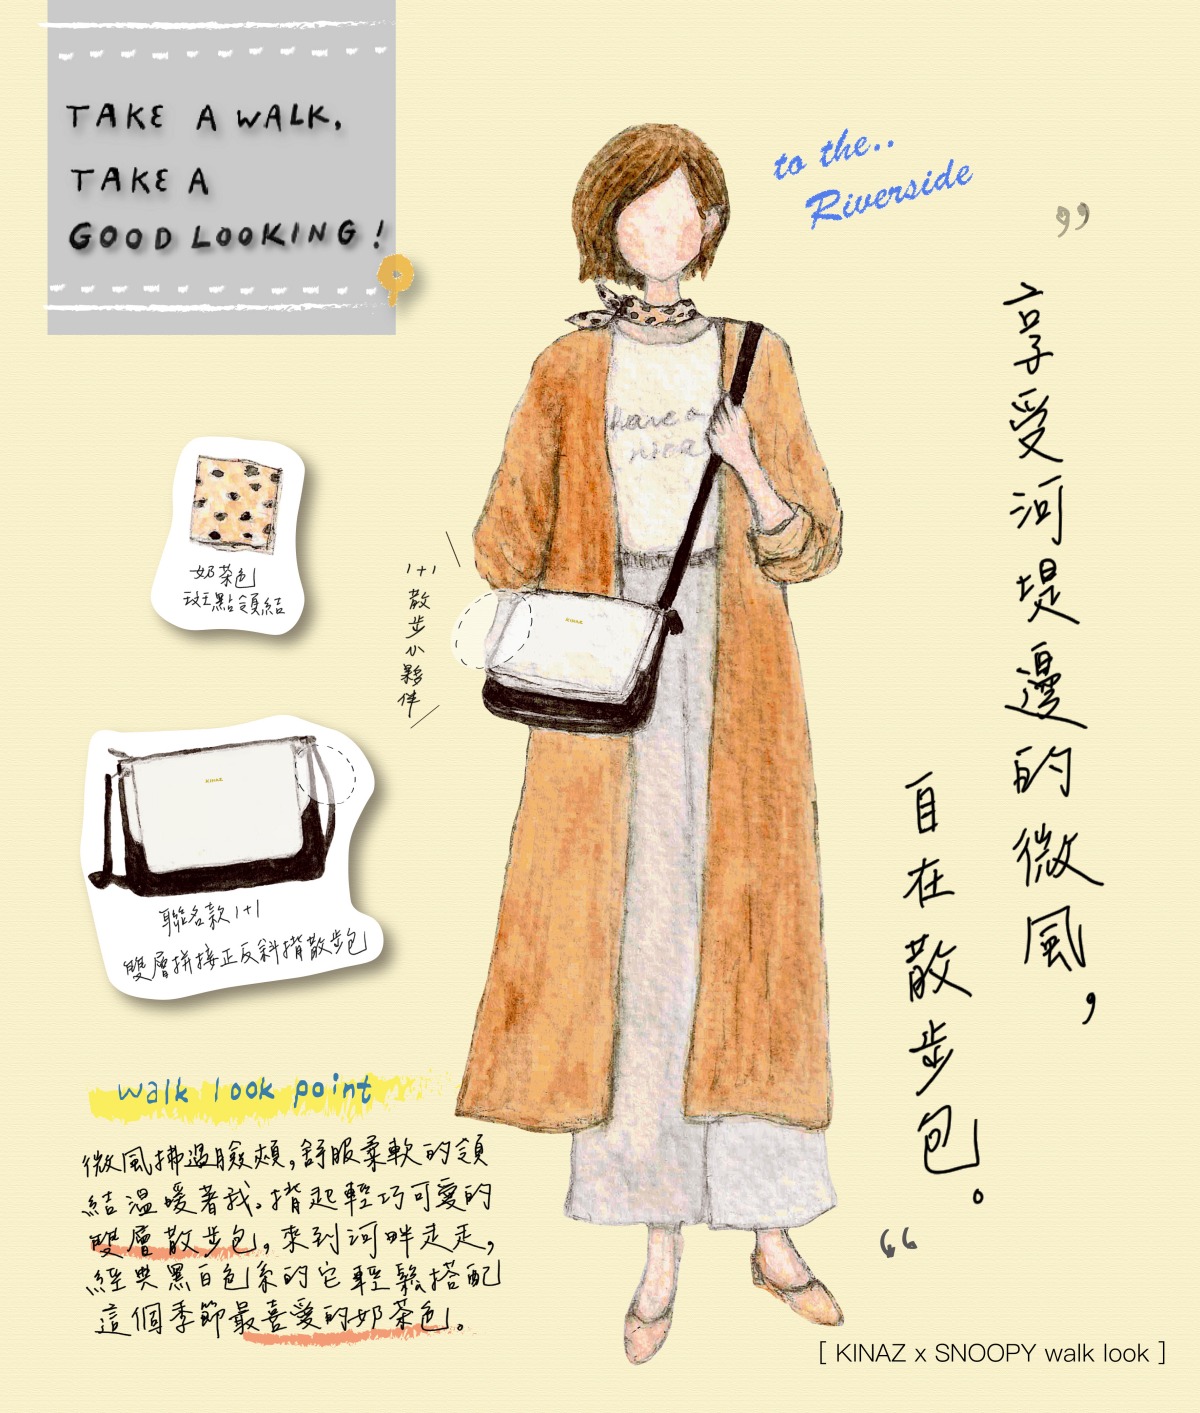 TAKE A WALK,
TAKE A
GOOD LOOKING!
to the..
Riverside
享受河堤邊的微風，
自在散步包。
have a
nice
KINAZ
1+1
散步小夥伴
奶茶色
斑點領結
KINAZ
聯名款1+1
雙層拼接正反斜揹散步包
walk look point
微風拂過臉頰，舒服柔軟的領
結溫暖著我。揹起輕巧可愛的
雙層散步包，來到河畔走走，
經典黑白色系的它輕鬆搭配
這個季節最喜愛的奶茶色。
[ KINAZ x SNOOPY walk look ]